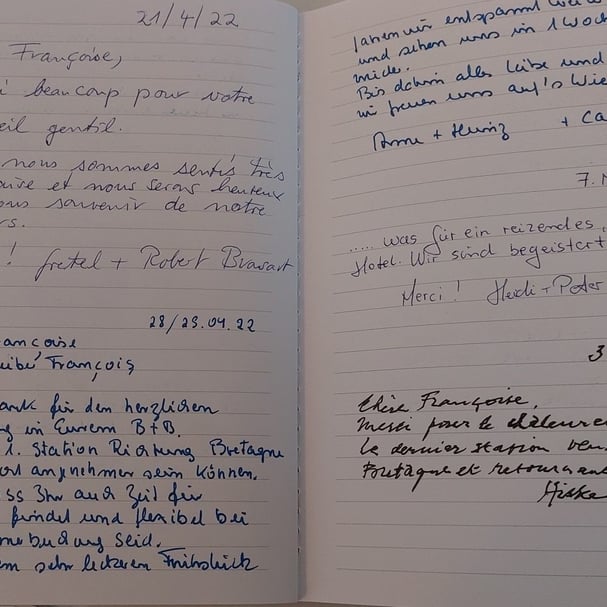 21/4/22
Françoise,
i beaucoup pour votre
eil gentil.
nous sommes sentis très
et nous serons heureux
ous souvenir de notre
rs.
! Gretel + Robert
28/29.04.22
ancoise
eibe François
ank für den herzlichen
g in Eurem B+B.
1. Station Richtung Bretagne
angenehmer sein können.
ss Ihr auch Zeit für
findet und flexibel bei
seid.
em sehr leckeren Frühstück
entspannt
und sehen uns in 1 Woch
Bis dahin alles Liebe und
wir freuen uns auf's Wie
Anne + Heinz + Ca
7. M
..... was für ein reizendes
Hotel. Wir sind begeistert
Merci! Heidi + Peter
3
Chère Françoise,
Merci pour le chaleureu
la dernier station
Bretagne et retournant